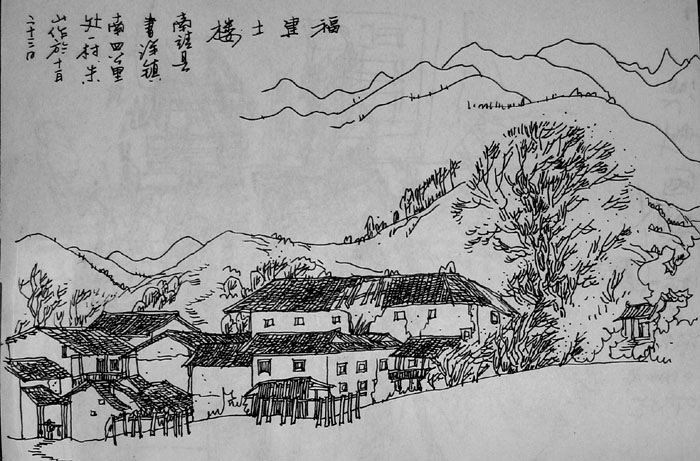 福建土楼
南靖县
書洋镇
南四公里
处一村朱
山作於十月
二十二日